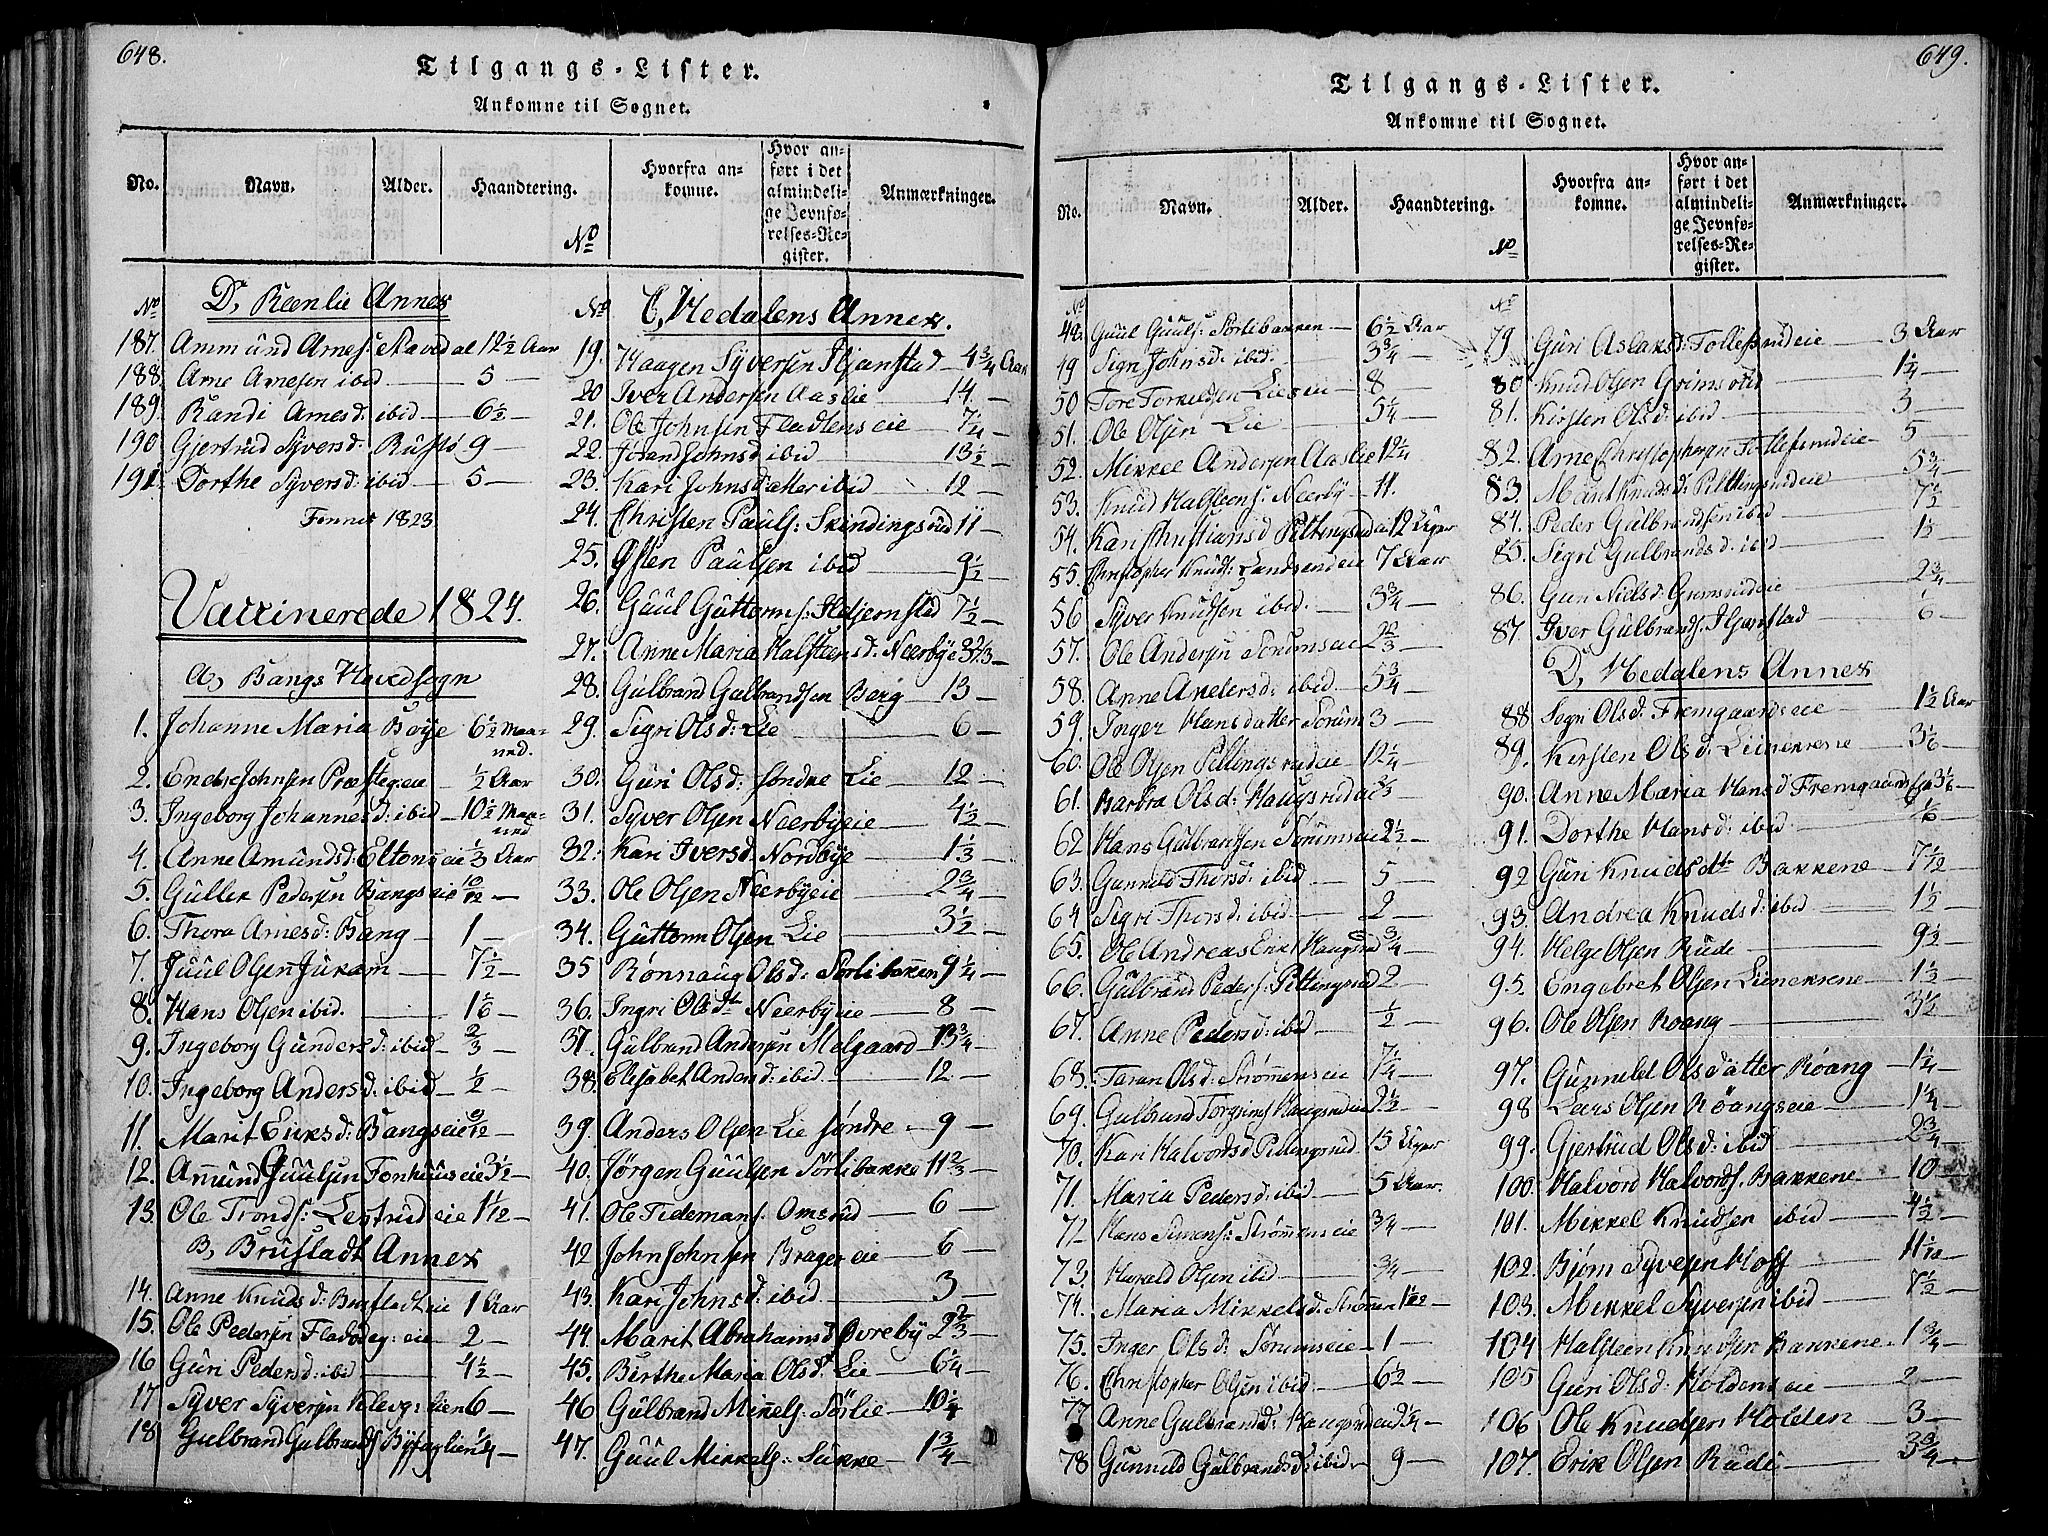 648.
Tilgangs-Lister.
Ankomne til Sognet.
No. Navn. Alder. Haandtering. Hvorfra ankomne. Hvor anført i det almindelige Jevnførelses-Register. Anmærkninger.
No
D, Reenlie Annex
No
187. Ammund Arnes: Stavedal 12½ Aar
188. Arne Arnesen ibid — 5 —
189. Randi Arnesd: ibid — 6½ —
190 Gjertrud Syversd: Rustø 9 —
191. Dorthe Syversd: ibid — 5 —
Finnes 1823
Vaccinerede 1824.
A, Bangs Hovedsogn
1. Johanne Maria Boye 6½ Maaned.
2. Endre Johnsen Præstegeie ½ Aar
3. Ingeborg Johannesd: ibid — 10½ Maaned
4. Anne Amundsd: Eltonseie ⅓ Aar
5. Guller Pedersen Bangseie 10/12 —
6. Thora Arnesd: Bang — 1 —
7. Juul Olsen Juram — 7½ —
8. Hans Olsen ibid. — 1⅙ —
9. Ingeborg Gundersd: ibid — ⅔ —
10. Ingeborg Andersd: ibid — ½ —
11. Marit Eriksd: Bangseie 9/12 —
12. Amund Juulsen Fonhuuseie 3½ —
13. Ole Tronds: Lerrudeie 1 1/12 —
B, Brufladt Annex
14. Anne Knudsd: Brufladteie 1 Aar
15. Ole Pedersen Fladoeg: eie 2 —
16 Guri Pedersd: ibid — 4½ —
17 Syver Syversen Klevg: lien 6 —
18 Gulbrand Gulbrands Byfuglien ¼ —
No C, Hedalens Annex.
19. Haagen Syversen Iljernstad — 4¾ Aar
20 Iver Andersen Aaslie — 14. —
21. Ole Johnsen Fladlenseie — 7¼ —
22. Jørand Johnsd ibid — 13½ —
23. Kari Johnsdatter ibid — 12 —
24. Christen Pauls: Skindingsrud 11 —
25. Østen Paulsen ibid — 9½ —
26. Guul Guttorms: Iljernstad 7½ —
27. Anne Maria Halsteensd. Neerbyeie 3⅔ —
28. Gulbrand Gulbrandsen Berg — 13 —
29. Sigri Olsd: Lie — 6 —
30. Guri Olsd: søndre Lie — 12 —
31. Syver Olsen Neerbyeie — 4½ —
32. Kari Iversd: Nordbye — 1⅓ —
33. Ole Olsen Neerbyeie — 2¾ —
34. Guttorm Olsen Lie — 3½ —
35 Rønnaug Olsd: Sørlibakken 9¼ —
36. Ingri Olsdtr Neerbyeie — 8 —
37. Gulbrand Andersen Melgaard — 13¾ —
38. Elisabet Andersd: ibid — 12 —
39. Anders Olsen Lie søndre — 9 —
40. Jørgen Guulsen Sørlibakke 11⅔ —
41. Ole Tidemans. Omsrud — 6 —
42 John Johnsen Bragereie — 6 —
43. Kari Johnsd: ibid — 3 —
44. Marit Abrahamsd Øvreby 2⅔ —
45. Birthe Maria Olsdt Lie — 6¼ —
46 Gulbrand Mikkels: Sørlie — 10¼
47. Guul Mikkels: Sukke — 1¾ —
649.
Tilgangs-Lister.
Ankomne til Sognet.
No. Navn. Alder. Haandtering. Hvorfra ankomne. Hvor anført i det almindelige Jevnførelses-Register. Anmærkninger.
No
No
48. Guul Guuls: Sørlibakken — 6½ Aar
49 Sigri Johnsd: ibid. — 3¾ —
50 Tore Torkildsen Lieseie — 8 —
51. Ole Olsen Lie — 5¼ —
52. Mikkel Andersen Aaslie 12¼
53. Knud Halsteens: Neerby — 11.
54. Kari Christiansd Pittingsrudeie 12 Uger
55. Christopher Knuds: Landsendeie 7 Aar
56 Syver Knudsen ibid. — 3¾ —
57. Ole Andersen Sørumseie 2⅔ —
58. Anne Andersd: ibid. — 5¾ —
59. Inger Hansdatter Sørum 3 —
60. Ole Olsen Pittingsrudeie 12¼ —
61. Barbra Olsd: Haugsrudeie ⅔ —
62 Hans Gulbrandsen Sørumseie 2½ —
63. Gunnild Thorsd: ibid — 5 —
64 Sigri Thorsd: ibid. — 2 —
65. Ole Andreas Eriks Haugsrud ¾ —
66. Gulbrand Peders: Pittingsrud 2 —
67. Anne Pedersd: ibid — ½ —
68. Taran Olsd: Strømmenseie 7¼ —
69. Gulbrand Torgrims Haugsrudeie 2½ —
70. Kari Halvorsd Pittingsrud 15 Uger
71. Maria Pedersd: ibid — 5 Aar.
72 Hans Simens: Strømmenseie ¾ —
73. Harald Olsen ibid — ¾ —
74. Maria Mikkelsd: Strømmen 1 1/12 —
75. Inger Olsd: Sørumseie — 1 —
76. Christopher Olsen ibid — 6½ —
77 Anne Gulbrandsd: Haugsrudeie 2¼ —
78 Gunnild Gulbrandsd: ibid — 9 —
79 Guri Aslaksd: Tollefsrudeie — 3 Aar
80 Knud Olsen Grimsrud — 1¼ —
81. Kirsten Olsd: ibid — 3 —
82. Arne Christophersen Tollefsrudeie — 5 —
83. Marit Knudsd: Pittingsrudeie 5¾ —
84. Peder Gulbrandsen ibid 7½ —
85. Sigri Gulbrandsd: ibid — 1½ —
86. Guri Nielsd: Grimsrudeie 2¾ —
87. Iver Gulbrands. Iljernstad — 6 —
D, Hedalens Annex
88 Sigri Olsd: Fremgaardseie — 1½ Aar
89. Kirsten Olsd: Liinekrene — 3⅙ —
90. Anne Maria Hansd Fremgaardseie 3⅙ —
91. Dorthe Hansd: ibid. — ⅙ —
92 Guri Knudsdtr Bakkene — 7 1/12 —
93. Andrea Knudsd: ibid — 1½ —
94. Helge Olsen Rude — 9½ —
95. Engebret Olsen Lienekrene — 1⅓ —
96. Ole Olsen Roang — 3½ —
97. Gunnild Olsdatter Røang — 1¼ —
98 Lars Olsen Røangseie — 1¼ —
99. Gjertrud Olsd: ibid — 2¾ —
100. Halvord Halvords. Bakkene — 10 —
101. Mikkel Knudsen ibid — 4½ —
102. Bjørn Syversen Hoff — 11 1/12 —
103. Mikkel Syversen ibid — 7½ —
104 Halsteen Knudsen Bakkene — 1¾ —
105 Guri Olsd: Holdenseie — 2 —
106 Ole Knudsen Holden — 3 —
107. Erik Olsen Rudi — 3¾ —